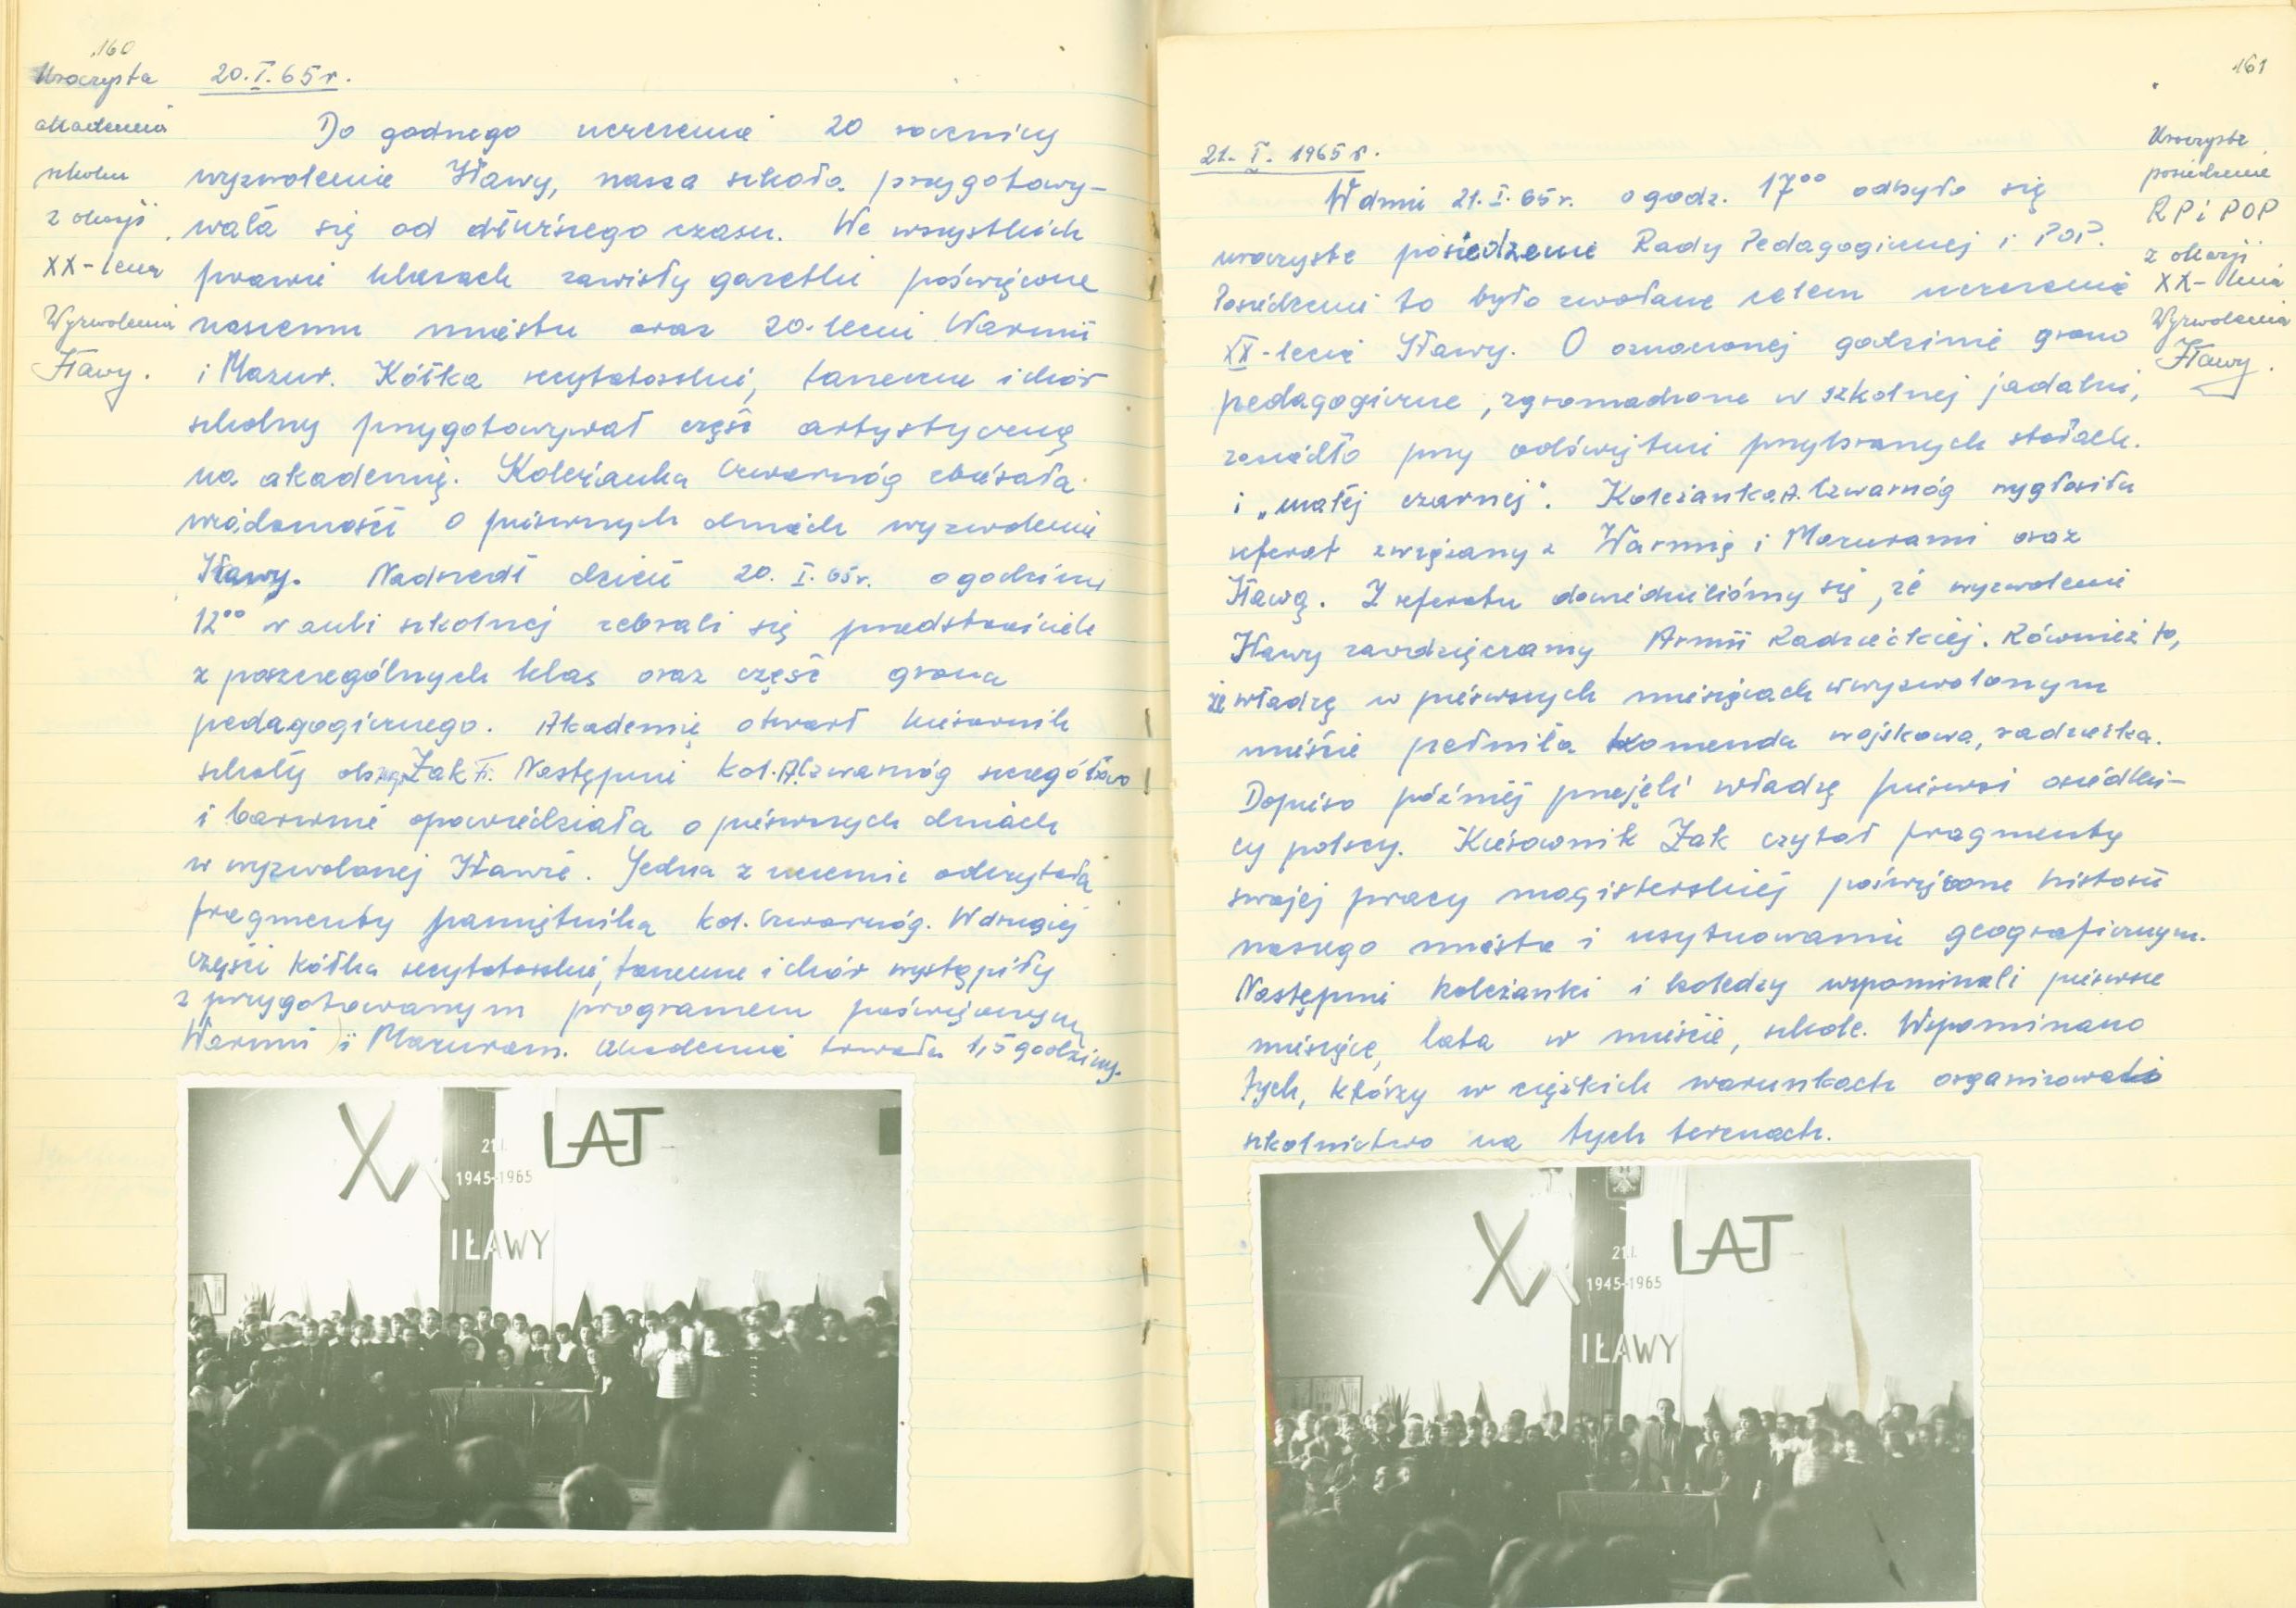 160
Uroczysta
akademia
szkolna
z okazji
XX-lecia
Wyzwolenia
Iławy.
20.I.65 r.
Do godnego uczczenia 20 rocznicy
wyzwolenia Iławy, nasza szkoła przygotowy-
wała się od dłuższego czasu. We wszystkich
prawie klasach zawisły gazetki poświęcone
naszemu miastu oraz 20-leciu Warmii
i Mazur. Kółka recytatorskie, taneczne i chór
szkolny przygotowywał część artystyczną
na akademię. Koleżanka Czwarnóg zbierała
wiadomości o pierwszych dniach wyzwolenia
Iławy. Nadszedł dzień 20. I. 65r. o godzinie
12⁰⁰ w auli szkolnej zebrali się przedstawiciele
z poszczególnych klas oraz część grona
pedagogicznego. Akademię otwarł kierownik
szkoły Żak F. Następnie kol. A. Czwarnóg szczegółowo
i barwnie opowiedziała o pierwszych dniach
w wyzwolonej Iławie. Jedna z uczennic odczytała
fragmenty pamiętnika kol. Czwarnóg. W drugiej
części kółka recytatorskie, taneczne i chór wystąpiły
z przygotowanym programem poświęconym
Warmii i Mazurom. Akademia trwała 1,5 godziny.
XX LAT
21 I.
1945-1965
IŁAWY
161
Uroczyste
posiedzenie
RP i POP
z okazji
XX-lecia
Wyzwolenia
Iławy.
21. I. 1965 r.
W dniu 21. I. 65r. o godz. 17⁰⁰ odbyło się
uroczyste posiedzenie Rady Pedagogicznej i POP.
Posiedzenie to było zwołane celem uczczenia
XX-lecia Iławy. O oznaczonej godzinie grono
pedagogiczne, zgromadzone w szkolnej jadalni,
zasiadło przy odświętnie przybranych stołach.
i „małej czarnej". Koleżanka A. Czwarnóg wygłosiła
referat związany z Warmią i Mazurami oraz
Iławą. Z referatu dowiedzieliśmy się, że wyzwolenie
Iławy zawdzięczamy Armii Radzieckiej. Również to,
że władzę w pierwszych miesiącach w wyzwolonym
mieście pełniła komenda wojskowa, radziecka.
Dopiero później przejęli władzę pierwsi osiedleń-
cy polscy. Kierownik Żak czytał fragmenty
swojej pracy magisterskiej poświęcone historii
naszego miasta i usytuowaniu geograficznym.
Następnie koleżanki i koledzy wspominali pierwsze
miesiące, lata w mieście, szkole. Wspominano
tych, którzy w ciężkich warunkach organizowali
szkolnictwo na tych terenach.
XX LAT
21 I.
1945-1965
IŁAWY